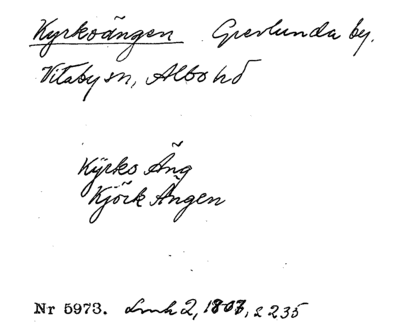 Kyrkoängen Grevlunda by.
Vitaby sn, Albo hd
Kÿrko Äng
Kjörk Ängen
Nr 5973. Lmh 2, 1803, s 235